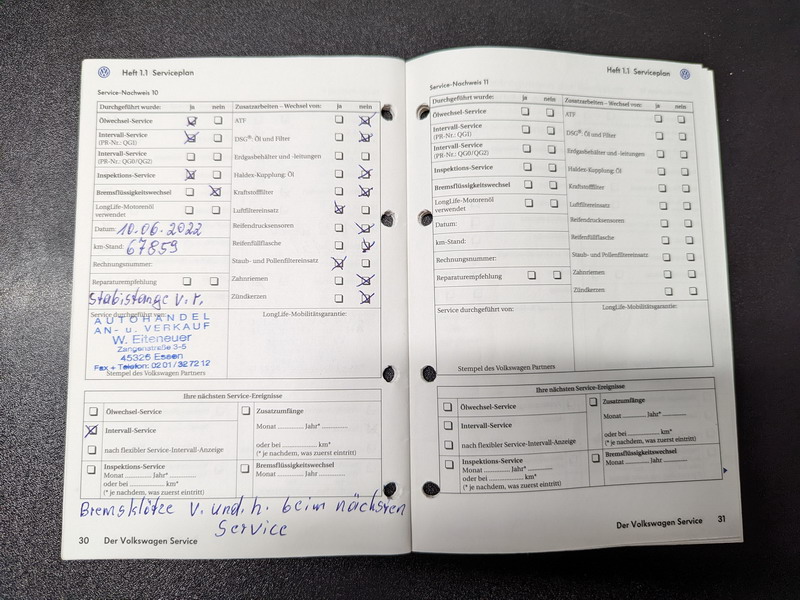 Heft 1.1 Serviceplan
Service-Nachweis 10
Durchgeführt wurde: ja nein Zusatzarbeiten – Wechsel von: ja nein
Ölwechsel-Service
Intervall-Service
(PR-Nr.: QG1)
Intervall-Service
(PR-Nr.: QG0/QG2)
Inspektions-Service
Bremsflüssigkeitswechsel
LongLife-Motorenöl
verwendet
Datum: 10.06.2022
km-Stand: 67859
Rechnungsnummer:
Reparaturempfehlung
Stabistange v.r.
ATF
DSG®: Öl und Filter
Erdgasbehälter und -leitungen
Haldex-Kupplung: Öl
Kraftstofffilter
Luftfiltereinsatz
Reifendrucksensoren
Reifenfüllflasche
Staub- und Pollenfiltereinsatz
Zahnriemen
Zündkerzen
Service durchgeführt von:
AUTOHANDEL
AN- u. VERKAUF
W. Eiteneuer
Zangenstraße 3-5
45326 Essen
Fax + Telefon: 0201/327212
Stempel des Volkswagen Partners
LongLife-Mobilitätsgarantie:
Ihre nächsten Service-Ereignisse
Ölwechsel-Service
Intervall-Service
nach flexibler Service-Intervall-Anzeige
Inspektions-Service
Monat ........... Jahr* ...........
oder bei ........... km*
(* je nachdem, was zuerst eintritt)
Zusatzumfänge
Monat ........... Jahr* ...........
oder bei ........... km*
(* je nachdem, was zuerst eintritt)
Bremsflüssigkeitswechsel
Monat ........... Jahr ...........
Bremsklötze v. und. h. beim nächsten
Service
30 Der Volkswagen Service
Heft 1.1 Serviceplan
Service-Nachweis 11
Durchgeführt wurde: ja nein Zusatzarbeiten – Wechsel von: ja nein
Ölwechsel-Service
Intervall-Service
(PR-Nr.: QG1)
Intervall-Service
(PR-Nr.: QG0/QG2)
Inspektions-Service
Bremsflüssigkeitswechsel
LongLife-Motorenöl
verwendet
Datum:
km-Stand:
Rechnungsnummer:
Reparaturempfehlung
ATF
DSG®: Öl und Filter
Erdgasbehälter und -leitungen
Haldex-Kupplung: Öl
Kraftstofffilter
Luftfiltereinsatz
Reifendrucksensoren
Reifenfüllflasche
Staub- und Pollenfiltereinsatz
Zahnriemen
Zündkerzen
Service durchgeführt von:
Stempel des Volkswagen Partners
LongLife-Mobilitätsgarantie:
Ihre nächsten Service-Ereignisse
Ölwechsel-Service
Intervall-Service
nach flexibler Service-Intervall-Anzeige
Inspektions-Service
Monat ........... Jahr* ...........
oder bei ........... km*
(* je nachdem, was zuerst eintritt)
Zusatzumfänge
Monat ........... Jahr* ...........
oder bei ........... km*
(* je nachdem, was zuerst eintritt)
Bremsflüssigkeitswechsel
Monat ........... Jahr ...........
Der Volkswagen Service 31